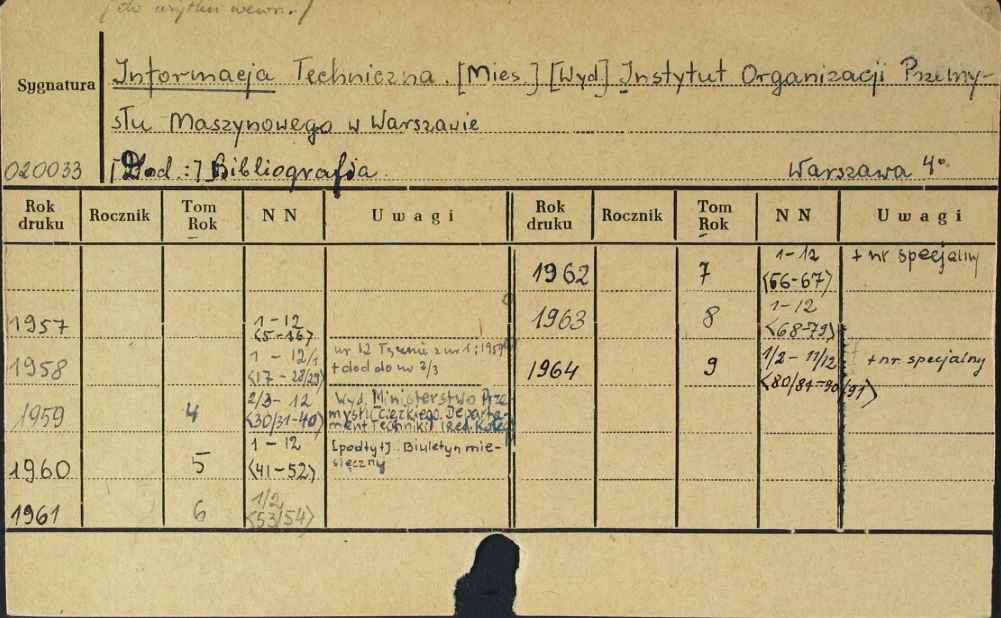 /do użytku wewn./
Sygnatura
Informacja Techniczna. [Mies.] [Wyd] Instytut Organizacji Przemy-
słu Maszynowego w Warszawie
020033 [Dod.:] Bibliografia. Warszawa 4°
Rok druku Rocznik Tom Rok NN Uwagi Rok druku Rocznik Tom Rok NN Uwagi
1962 7 1-12 <56-67> + nr specjalny
1957 1-12 <5-16> 1963 8 1-12 <68-79>
1958 1-12/1 <17-28/29> nr 12 Tącznie z nr 1:1959 + dod do nr 2/3 1964 9 1/2-11/12 <80/81-90/91> + nr. specjalny
1959 4 2/3-12 <30/31-40> Wyd. Ministerstwo Prze-
mysłu Ciężkiego. Departa-
ment Techniki
1960 5 1-12 <41-52> [podtyt]. Biuletyn mie-
sięczny
1961 6 1/2 <53/54>